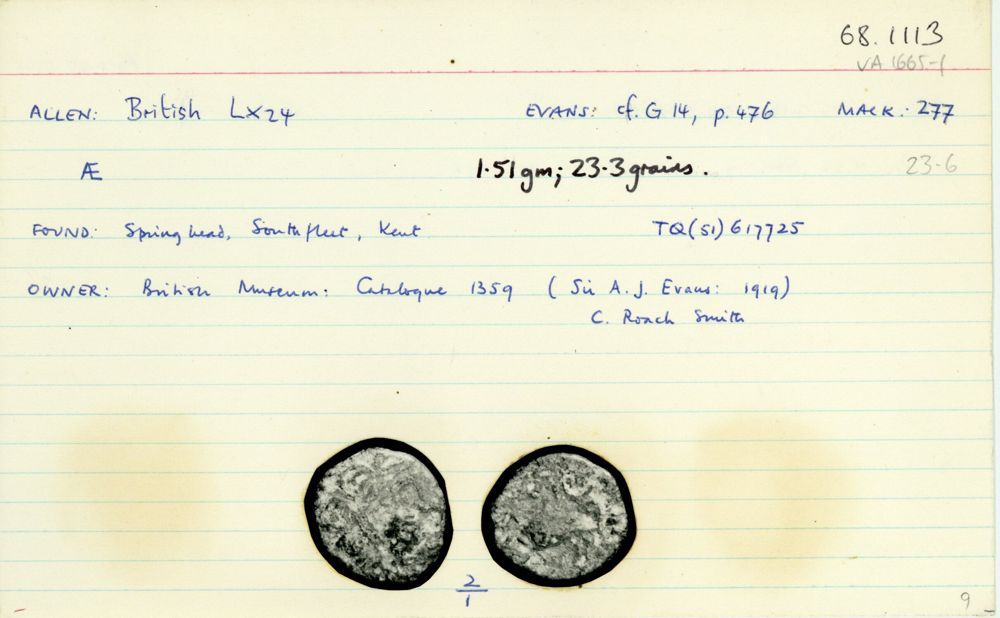 68.1113
VA 1665-1
ALLEN: British LX24 EVANS: cf. G 14, p. 476 MACK: 277
Æ 1.51gm; 23.3grains. 23.6
FOUND: Springhead, Southfleet, Kent TQ(51)617725
OWNER: British Museum: Catalogue 1359 (Sir A.J. Evans: 1919)
C. Roach Smith
2
1
9